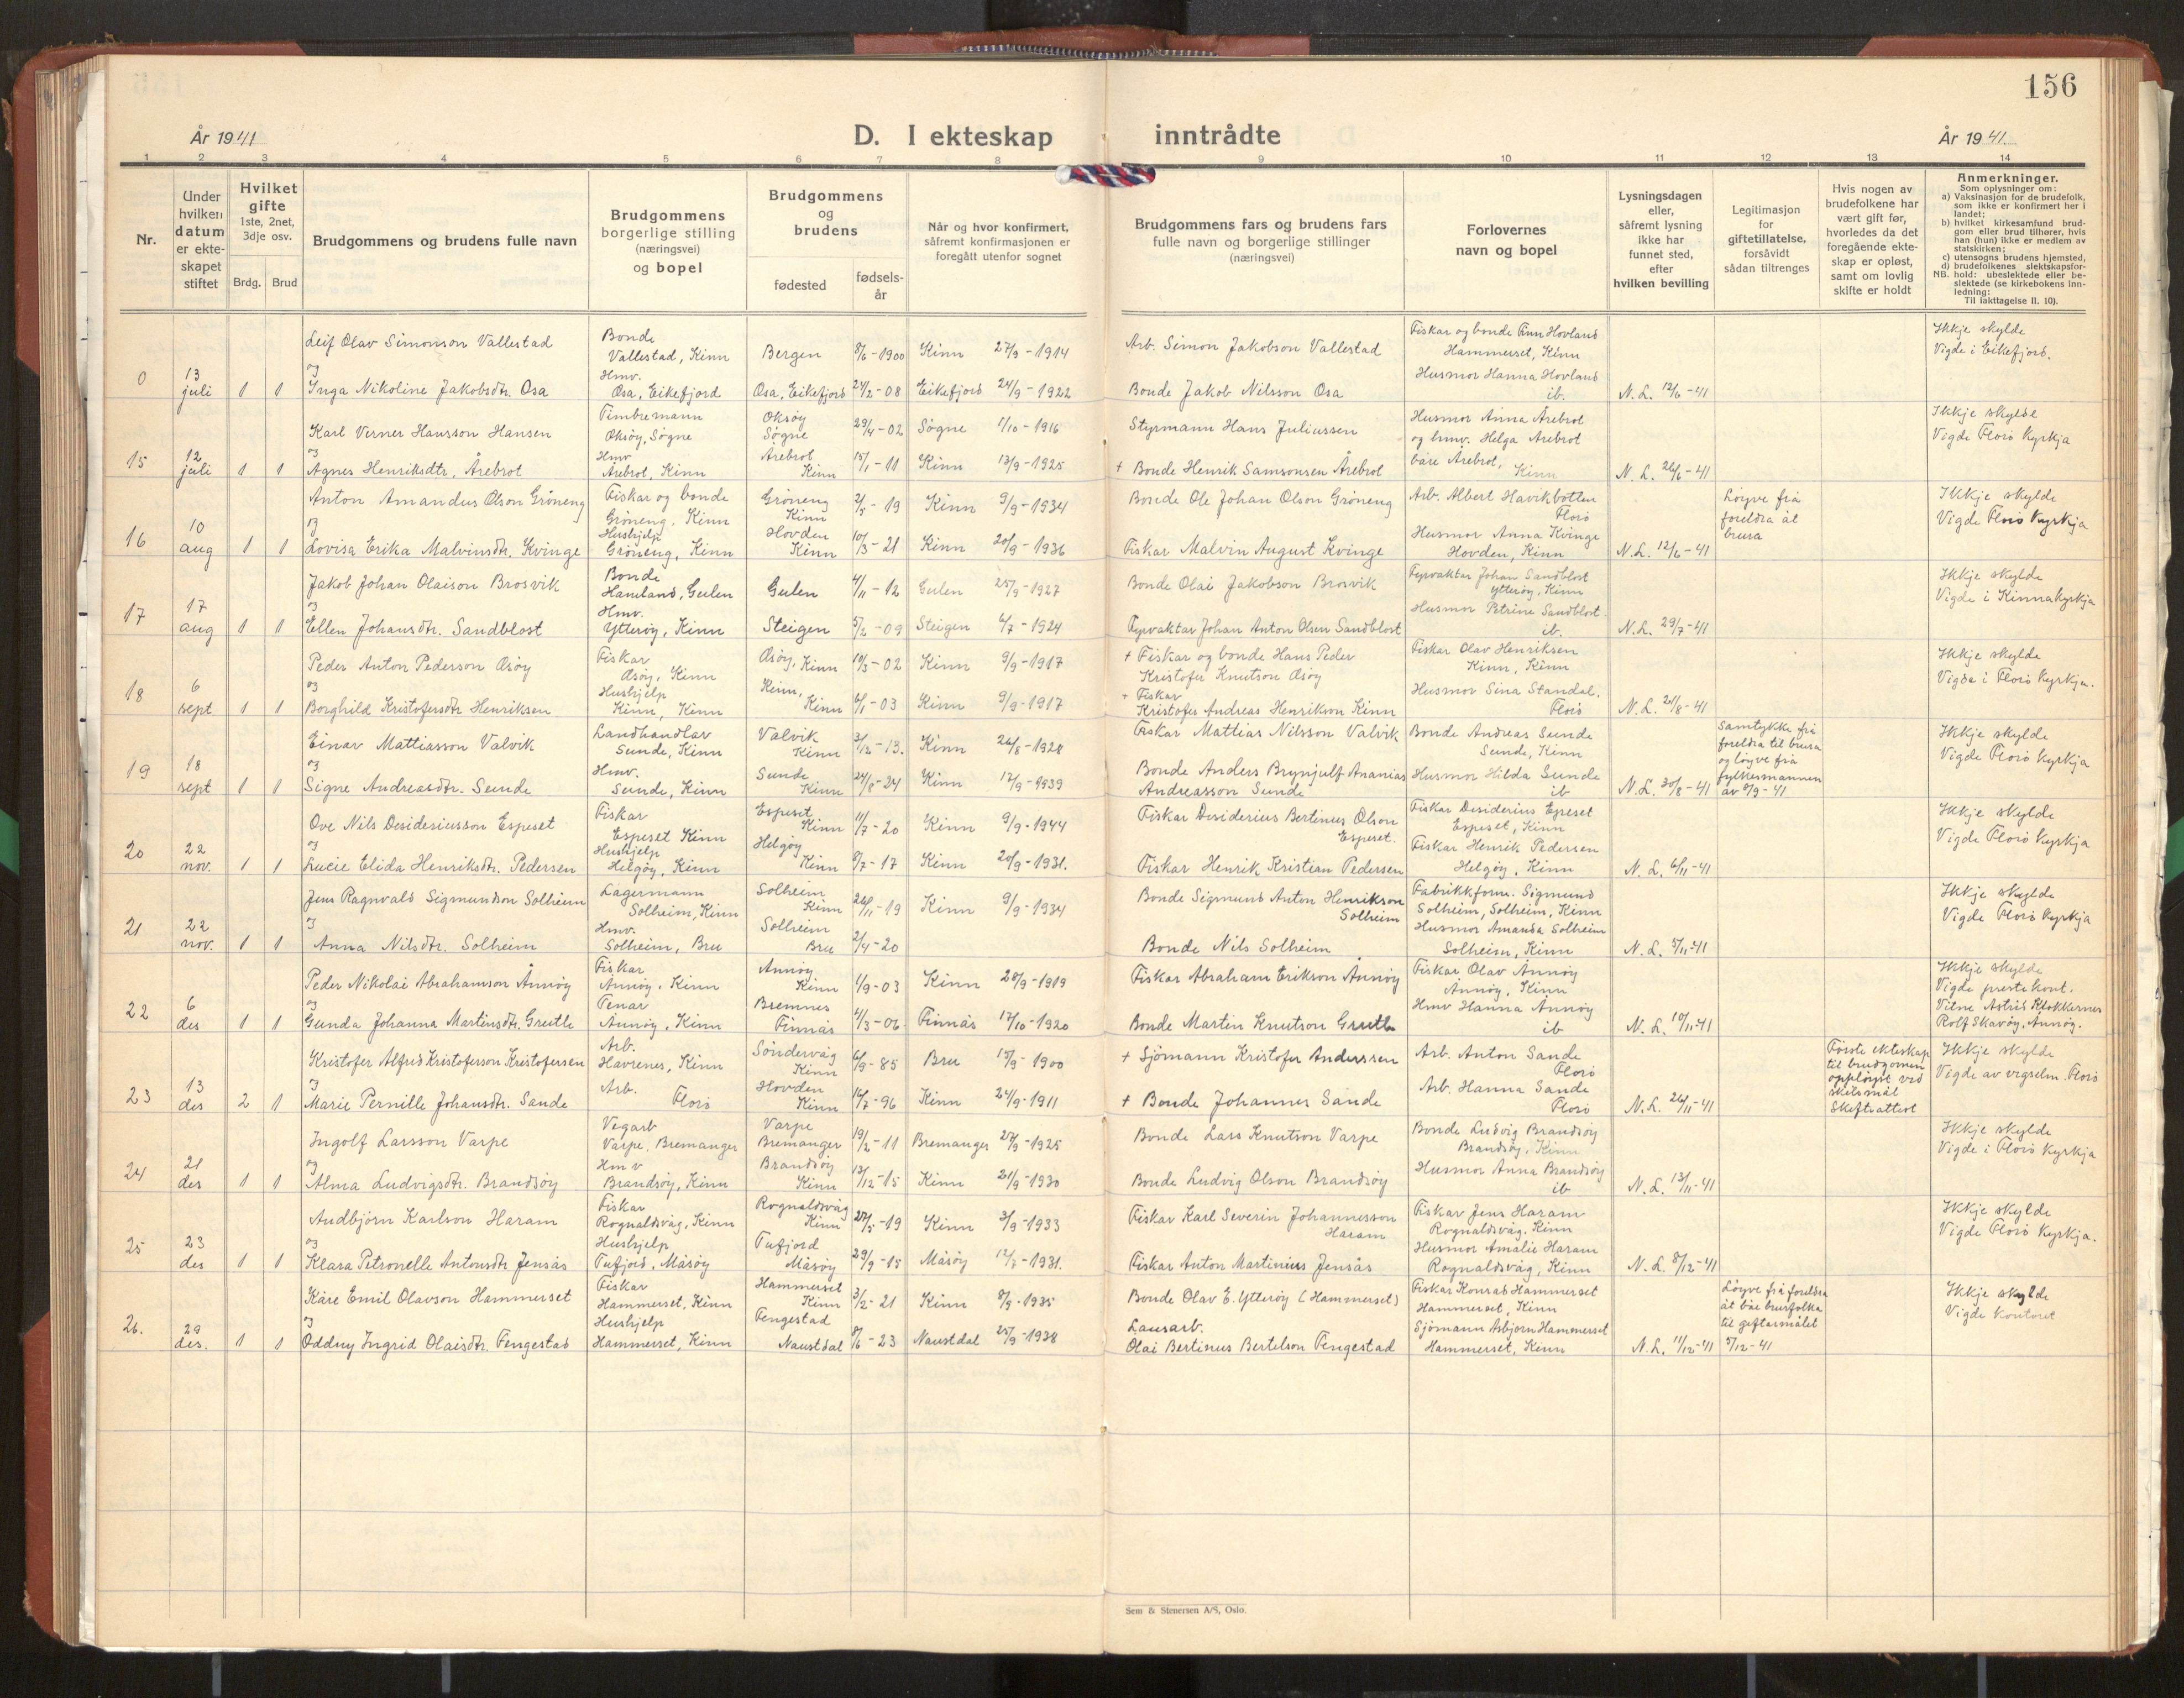 156
År 1941
D. I ekteskap inntrådte
År 1941.
1 2 3 4 5 6 7 8 9 10 11 12 13 14
Nr.
Under hvilken datum er ekteskapet stiftet
Hvilket gifte 1ste, 2net, 3dje osv.
Brdg. Brud
Brudgommens og brudens fulle navn
Brudgommens borgerlige stilling (næringsvei) og bopel
Brudgommens og brudens
fødested
fødselsår
Når og hvor konfirmert, såfremt konfirmasjonen er foregått utenfor sognet
Brudgommens fars og brudens fars fulle navn og borgerlige stillinger (næringsvei)
Forlovernes navn og bopel
Lysningsdagen eller, såfremt lysning ikke har funnet sted, efter hvilken bevilling
Legitimasjon for giftetillatelse, forsåvidt sådan tiltrenges
Hvis nogen av brudefolkene har vært gift før, hvorledes da det foregående ekteskap er opløst, samt om lovlig skifte er holdt
Anmerkninger.
Som oplysninger om:
a) Vaksinasjon for de brudefolk, som ikke er konfirmert her i landet;
b) hvilket kirkesamfund brudgom eller brud tilhører, hvis han (hun) ikke er medlem av statskirken;
c) utensogns brudens hjemsted,
d) brudefolkenes slektskapsforhold: ubeslektede eller beslektede (se kirkebokens innledning:
NB.
Til iakttagelse II. 10).
0 13 juli 1 1
Leif Olav Simonson Vallestad
og
Inga Nikoline Jakobsdtr. Osa
Bonde
Vallestad, Kinn
Hmv.
Osa, Eikefjord
Bergen 8/6-1900 Kinn 27/9-1914
Osa, Eikefjord 24/2-08 Eikefjord 24/9-1922
Arb. Simon Jakobson Vallestad
Bonde Jakob Nilsson Osa
Fiskar og bonde Finn Hovland
Hammerset, Kinn
Husmor Hanna Hovland
ib.
N.L. 12/6-41
Ikkje skylde
Vigde i Eikefjord.
15 12 juli 1 1
Karl Verner Hansson Hansen
og
Agnes Henriksdtr. Årebrot
Timbremann
Oksøy, Søgne
Hmv
Årebrot, Kinn
Oksøy
Søgne 29/4-02 Søgne 1/10-1916
Årebrot
Kinn 15/1-11 Kinn 13/9-1925
Styrmann Hans Juliussen
+ Bonde Henrik Samsonsen Årebrot
Husmor Anna Årebrot
og hmv. Helga Årebrot
båe Årebrot, Kinn
N.L. 26/6-41
Ikkje skylde
Vigde Florø Kyrkja
16 10 aug 1 1
Anton Amandus Olson Grøneng
og
Lovisa Erika Malvinsdtr. Kvinge
Fiskar og bonde
Grøneng, Kinn
Hushjelp
Grøneng, Kinn
Grøneng
Kinn 2/5-19 Kinn 9/9-1934
Hovden
Kinn 10/3-21 Kinn 20/9-1936
Bonde Ole Johan Olson Grøneng
Fiskar Malvin August Kvinge
Arb. Albert Havikbotten
Florø
Husmor Anna Kvinge
Hovden, Kinn
N.L. 12/6-41
Løyve frå
foreldra åt
brura
Ikkje skylde
Vigde Florø Kyrkja
17 17 aug 1 1
Jakob Johan Olaison Brosvik
og
Ellen Johansdtr. Sandblost
Bonde
Håmeland, Gulen
Hmv.
Ytterøy, Kinn
Gulen 4/11-12 Gulen 25/9-1927
Steigen 5/2-09 Steigen 6/7-1924
Bonde Olai Jakobson Brosvik
Fyrvaktar Johan Anton Olsen Sandblost
Fyrvaktar Johan Sandblost
Ytterøy, Kinn
Husmor Petrine Sandblost.
ib.
N.L. 29/7-41
Ikkje skylde
Vigde i Kinnakyrkja
18 6 sept 1 1
Peder Anton Pederson Osøy
og
Borghild Kristofersdtr Henriksen
Fiskar
Osøy, Kinn
Hushjelp
Kinn, Kinn
Osøy, Kinn 10/3-02 Kinn 9/9-1917
Kinn,
Kinn 6/1-03 Kinn 9/9-1917
+ Fiskar og bonde Hans Peder
Kristofer Knutson Osøy
+ Fiskar
Kristofer Andreas Henrikson Kinn
Fiskar Olav Henriksen
Kinn, Kinn
Husmor Sina Standal.
Florø
N.L. 21/8-41
Ikkje skylde
Vigde i Florø Kyrkja.
19 18 sept 1 1
Einar Mattiasson Valvik
og
Signe Andreasdtr. Sunde
Landhandlar
Sunde, Kinn
Hmv.
Sunde, Kinn
Valvik
Kinn 3/12-13. Kinn 26/8-1928
Sunde
Kinn 24/8-24 Kinn 17/9-1939
Fiskar Mattias Nilsson Valvik
Bonde Anders Brynjulf Ananias
Andreasson Sunde
Bonde Andreas Sunde
Sunde, Kinn
Husmor Hilda Sunde
ib
N.L. 30/8-41
Samtykke frå
foreldra til brura
og løyve frå
fylkesmannen
av 8/9-41
Ikkje skylde
Vigde Florø Kyrkja
20 22 nov. 1 1
Ove Nils Desideriusson Espeset
og
Lucie Elida Henriksdtr. Pedersen
Fiskar
Espeset Kinn
Hushjelp
Helgøy, Kinn
Espeset
Kinn 11/7-20 Kinn 9/9-1944
Helgøy
Kinn 8/7-17 Kinn 20/9-1931.
Fiskar Desiderius Bertinus Olson
Espeset.
Fiskar Henrik Kristian Pedersen
Fiskar Desiderius Espeset
Espeset, Kinn
Fiskar Henrik Pedersen
Helgøy, Kinn
N.L. 6/11-41
Ikkje skylde
Vigde Florø Kyrkja
21 22 nov. 1 1
Jens Ragnvald Sigmundson Solheim
og
Anna Nilsdtr. Solheim
Lagermann
Solheim, Kinn
Hmv.
Solheim, Bru
Solheim
Kinn 26/11-19 Kinn 9/9-1934
Solheim
Bru 2/4-20
Bonde Sigmund Anton Henrikson
Solheim
Bonde Nils Solheim
Fabrikkform. Sigmund
Solheim, Solheim, Kinn
Husmor Amanda Solheim
Solheim, Kinn
N.L. 5/11-41
Ikkje skylde
Vigde Florø Kyrkja
22 6 des 1 1
Peder Nikolai Abrahamson Ånnøy
og
Gunda Johanna Martinsdtr. Greutle
Fiskar
Ånnøy, Kinn
Tenar
Ånnøy, Kinn
Ånnøy
Kinn 1/9-03 Kinn 28/9-1919
Bremnes
Finnås 4/3-06 Finnås 17/10-1920
Fiskar Abraham Erikson Ånnøy
Bonde Martin Knutson Greutle
Fiskar Olav Ånnøy
Ånnøy, Kinn
Hmv Hanna Ånnøy
ib
N.L. 10/11-41
Ikkje skylde
Vigde prestekont.
Vitne Astrid Klokkernes
Rolf Skavøy, Ånnøy.
23 13 des 2 1
Kristofer Alfred Kristoferson Kristofersen
og
Marie Pernille Johansdtr. Sande
Arb.
Havrenes, Kinn
Arb.
Florø
Søndervåg
Kinn 6/9-85 Bru 15/9-1900
Hovden
Kinn 14/7-96 Kinn 24/9-1911
+ Sjömann Kristofer Anderssen
+ Bonde Johannes Sande
Arb. Anton Sande
Florø
Arb. Hanna Sande
Florø
N.L. 26/11-41
Første ekteskap
til brudgomen
oppløyst ved
skilsmål
Skift attest
Ikkje skylde
Vigde av vigselm. Florø
24 21 des 1 1
Ingolf Larsson Varpe
og
Alma Ludvigsdtr. Brandsøy
Vegarb
Varpe, Bremanger
Hmv
Brandsøy, Kinn
Varpe
Bremanger 19/2-11 Bremanger 27/9-1925
Brandsøy
Kinn 13/12-15 Kinn 21/9-1930
Bonde Lars Knutson Varpe
Bonde Ludvig Olson Brandsøy
Bonde Ludvig Brandsøy
Brandsøy, Kinn
Husmor Anna Brandsøy
ib
N.L. 13/11-41
Ikkje skylde
Vigde i Florø Kyrkja
25 23 des 1 1
Audbjørn Karlson Haram
og
Klara Petronelle Antonsdtr Jensås
Fiskar
Rognaldsvåg, Kinn
Hushjelp
Tufjord, Måsøy
Rognaldsvåg
Kinn 27/5-19 Kinn 3/9-1933
Tufjord
Måsøy 29/9-15 Måsøy 12/7-1931.
Fiskar Karl Severin Johannesson
Haram
Fiskar Anton Martinius Jensås
Fiskar Jens Haram
Rognaldsvåg, Kinn
Husmor Amalie Haram
Rognaldsvåg, Kinn
N.L. 8/12-41
Ikkje skylde
Vigde Florø Kyrkja.
26. 29 des. 1 1
Kåre Emil Olavson Hammerset
og
Oddny Ingrid Olaisdtr. Fengestad
Fiskar
Hammerset, Kinn
Hushjelp
Hammerset, Kinn
Hammerset
Kinn 3/2-21 Kinn 8/9-1935
Fengestad
Naustdal 8/6-23 Naustdal 25/9-1938
Bonde Olav E. Ytterøy (Hammerset)
Lausarb.
Olai Bertinus Bertelson Fengestad
Fiskar Konrad Hammerset
Hammerset, Kinn
Sjömann Asbjørn Hammerset
Hammerset, Kinn
N.L. 11/12-41
Løyve frå foreldra
åt båe brurfolka
til giftarmålet
5/12-41
Ikkje skylde
Vigde kontoret
Sem & Stenersen A/S, Oslo.